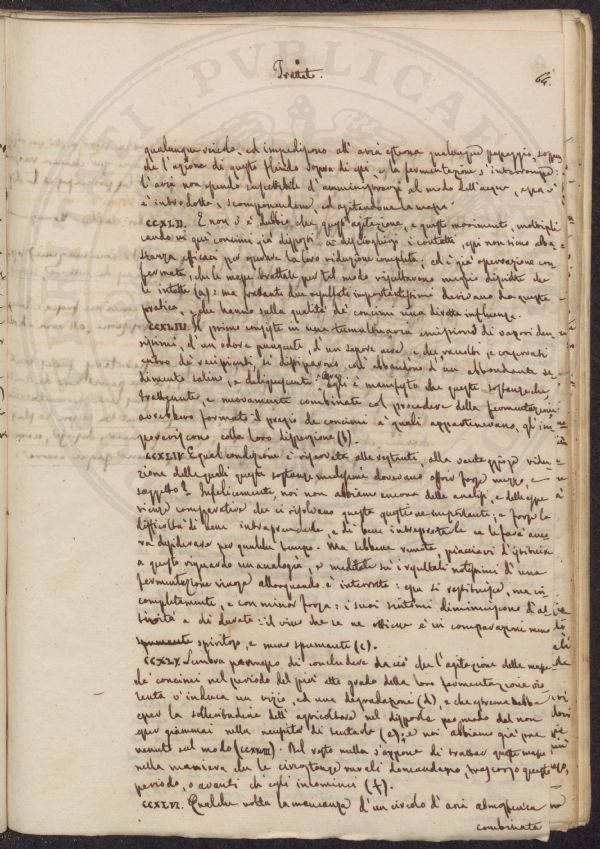 Trattato.
64.
qualunque veicolo, ed impediscono all' aria esterna qualunque passaggio,
de l'azione di questo fluido sopra di essi, e la fermentazione s'interrompe:
l'aria non essendo suscettibile d'amministrarsi al modo dell'acqua, essa v'
è introdotta, scomponendone, ed agitandone la massa.
CCXLII. E non v'è dubbio che quest'agitazione, e questo movimento, moltipli
cando in quei concimi già disposti a disciogliersi i contatti, essi non siano abba
stanza efficaci per operare la loro riduzione completa; ed è già operazione con
fermata, che le masse trattate per tal modo risultarono meglio disfatte che
le intatte (a): ma frattanto due risultati importantissimi derivano da questa
pratica, e che hanno sulla qualità de' concimi una diretta influenza.
CCXLIII. Il primo consiste in una tumultuaria emissione di vapori den
sissimi, d'un odore pungente, d'un sapore acre, e che, raccolti, e conservati
entro de' recipienti si dissiparono coll' abbandono d'un abbondante se
dimento salino, e deliquescente. Ora egli è manifesto che queste sostanze che
trattenute, e nuovamente combinate col procedere della fermentazione
avrebbero formato il pregio de' concimi a' quali appartenevano, gl'im
poveriscono colla loro dispersione (b).
CCXLIV. E qual condizione è riservata alle restanti, alla susseguente ridu
zione delle quali queste sostanze medesime dovevano offrir forze, mezzo, e
soggetto? Infelicemente, noi non abbiamo ancora delle analisi, e delle espe
rienze comparative che ci risolvano questa questione importante, e forse la
difficoltà di bene intraprenderle, e di bene interpretarle ce le farà anco
ra desiderare per qualche tempo. Ma sebbene remota, piacciavi d'istituire
a questo riguardo un'analogia, e meditate su i risultati notissimi d'una
fermentazione vinosa allorquando è interrotta: essa si restituisce, ma in
completamente, e con minor forza: i suoi sintomi diminuiscono d'at
tività e di durata: il vino che se ne ottiene è in comparazione meno
spumante spiritoso, e meno spumante (c).
CCXLV. Sembra permesso di concludere da ciò che l'agitazione delle masse
de' concimi nel periodo del più alto grado della loro fermentazione vio
lenta v'induca un vizio, ed una degradazione (d), e che estrema debba
esser la sollecitudine dell' agricoltore nel disporle per modo del non
esser giammai nella necessità di tentarlo (e); e noi abbiamo già pre
venuto sul modo (CCXXVIII). Del resto nulla s'oppone di trattar queste masse
nella maniera che le circostanze rurali domandano, trascorso questo
periodo, o avanti ch'egli incominci (f).
CCXLVI. Qualche volta la mancanza d'un circolo d'aria atmosferica
combinata